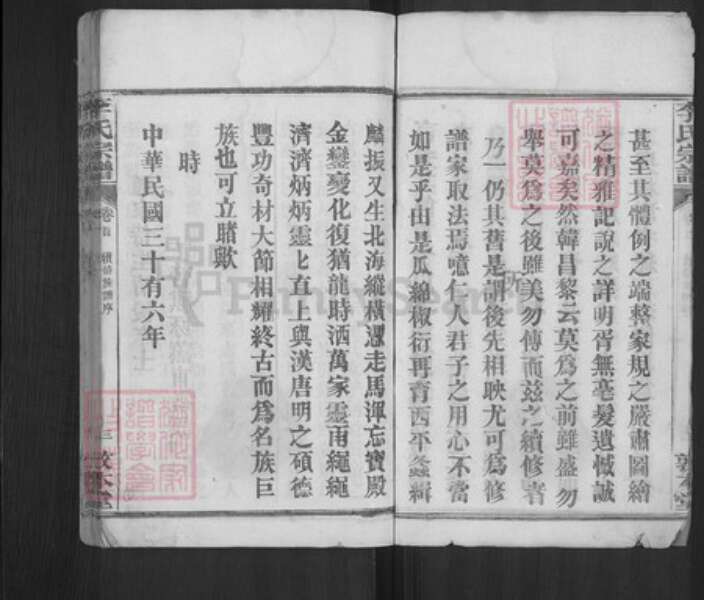 甚至其體例之端整家規之嚴肅圖繪
之精雅記說之詳明胥無毫髮遺憾誠
可嘉矣然韓昌黎云莫爲之前雖盛勿
舉莫爲之後雖美勿傳而茲之續修者
乃一仍其舊是謂後先相映尤可爲修
譜家取法焉噫仁人君子之用心不當
如是乎由是瓜綿椒衍再育西平螽緝
麟振又生北海縱橫慿走馬渾忘寶殿
金鑾變化復猶龍時洒萬家靈雨繩繩
濟濟炳炳靈匕直上與漢唐明之碩德
豐功奇材大節相耀終古而爲名族巨
族也可立睹歟
時
中華民國三十有六年
李氏宗譜
卷首
三
敦本堂
李氏宗譜
敦本堂
FamilySearch